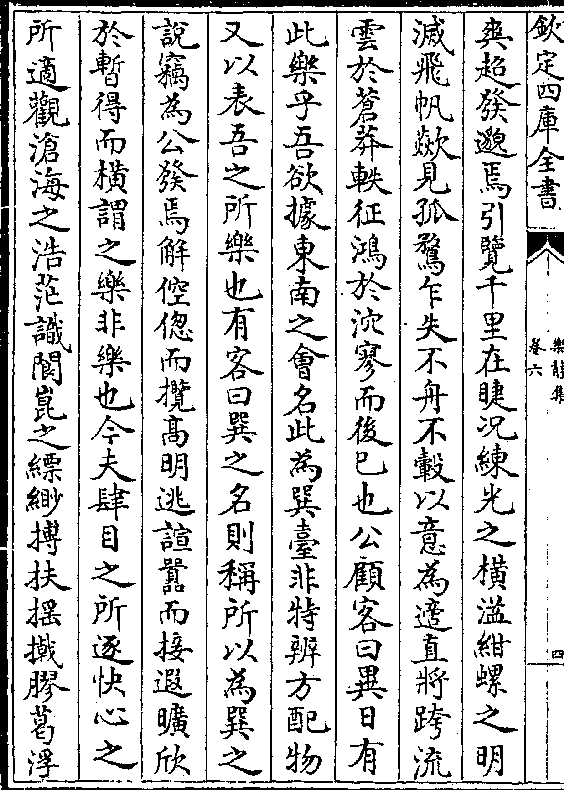 欽定四庫全書
樂靜集
卷六
四
爽超發邈焉引覽千里在睫況練光之橫溢紺螺之明
滅飛帆歘見孤鶩乍失不舟不轂以意為適直將跨流
雲於蒼莽軼征鴻於泬寥而後已也公顧客曰異日有
此樂乎吾欲據東南之會名此為巽臺非特辨方配物
又以表吾之所樂也有客曰巽之名則稱所以為巽之
說竊為公發焉解倥傯而攬高明逃諠囂而接遐曠欣
於暫得而橫謂之樂非樂也今夫肆目之所逐快心之
所適觀滄海之浩茫識閬崑之縹緲摶扶搖擑膠葛浮